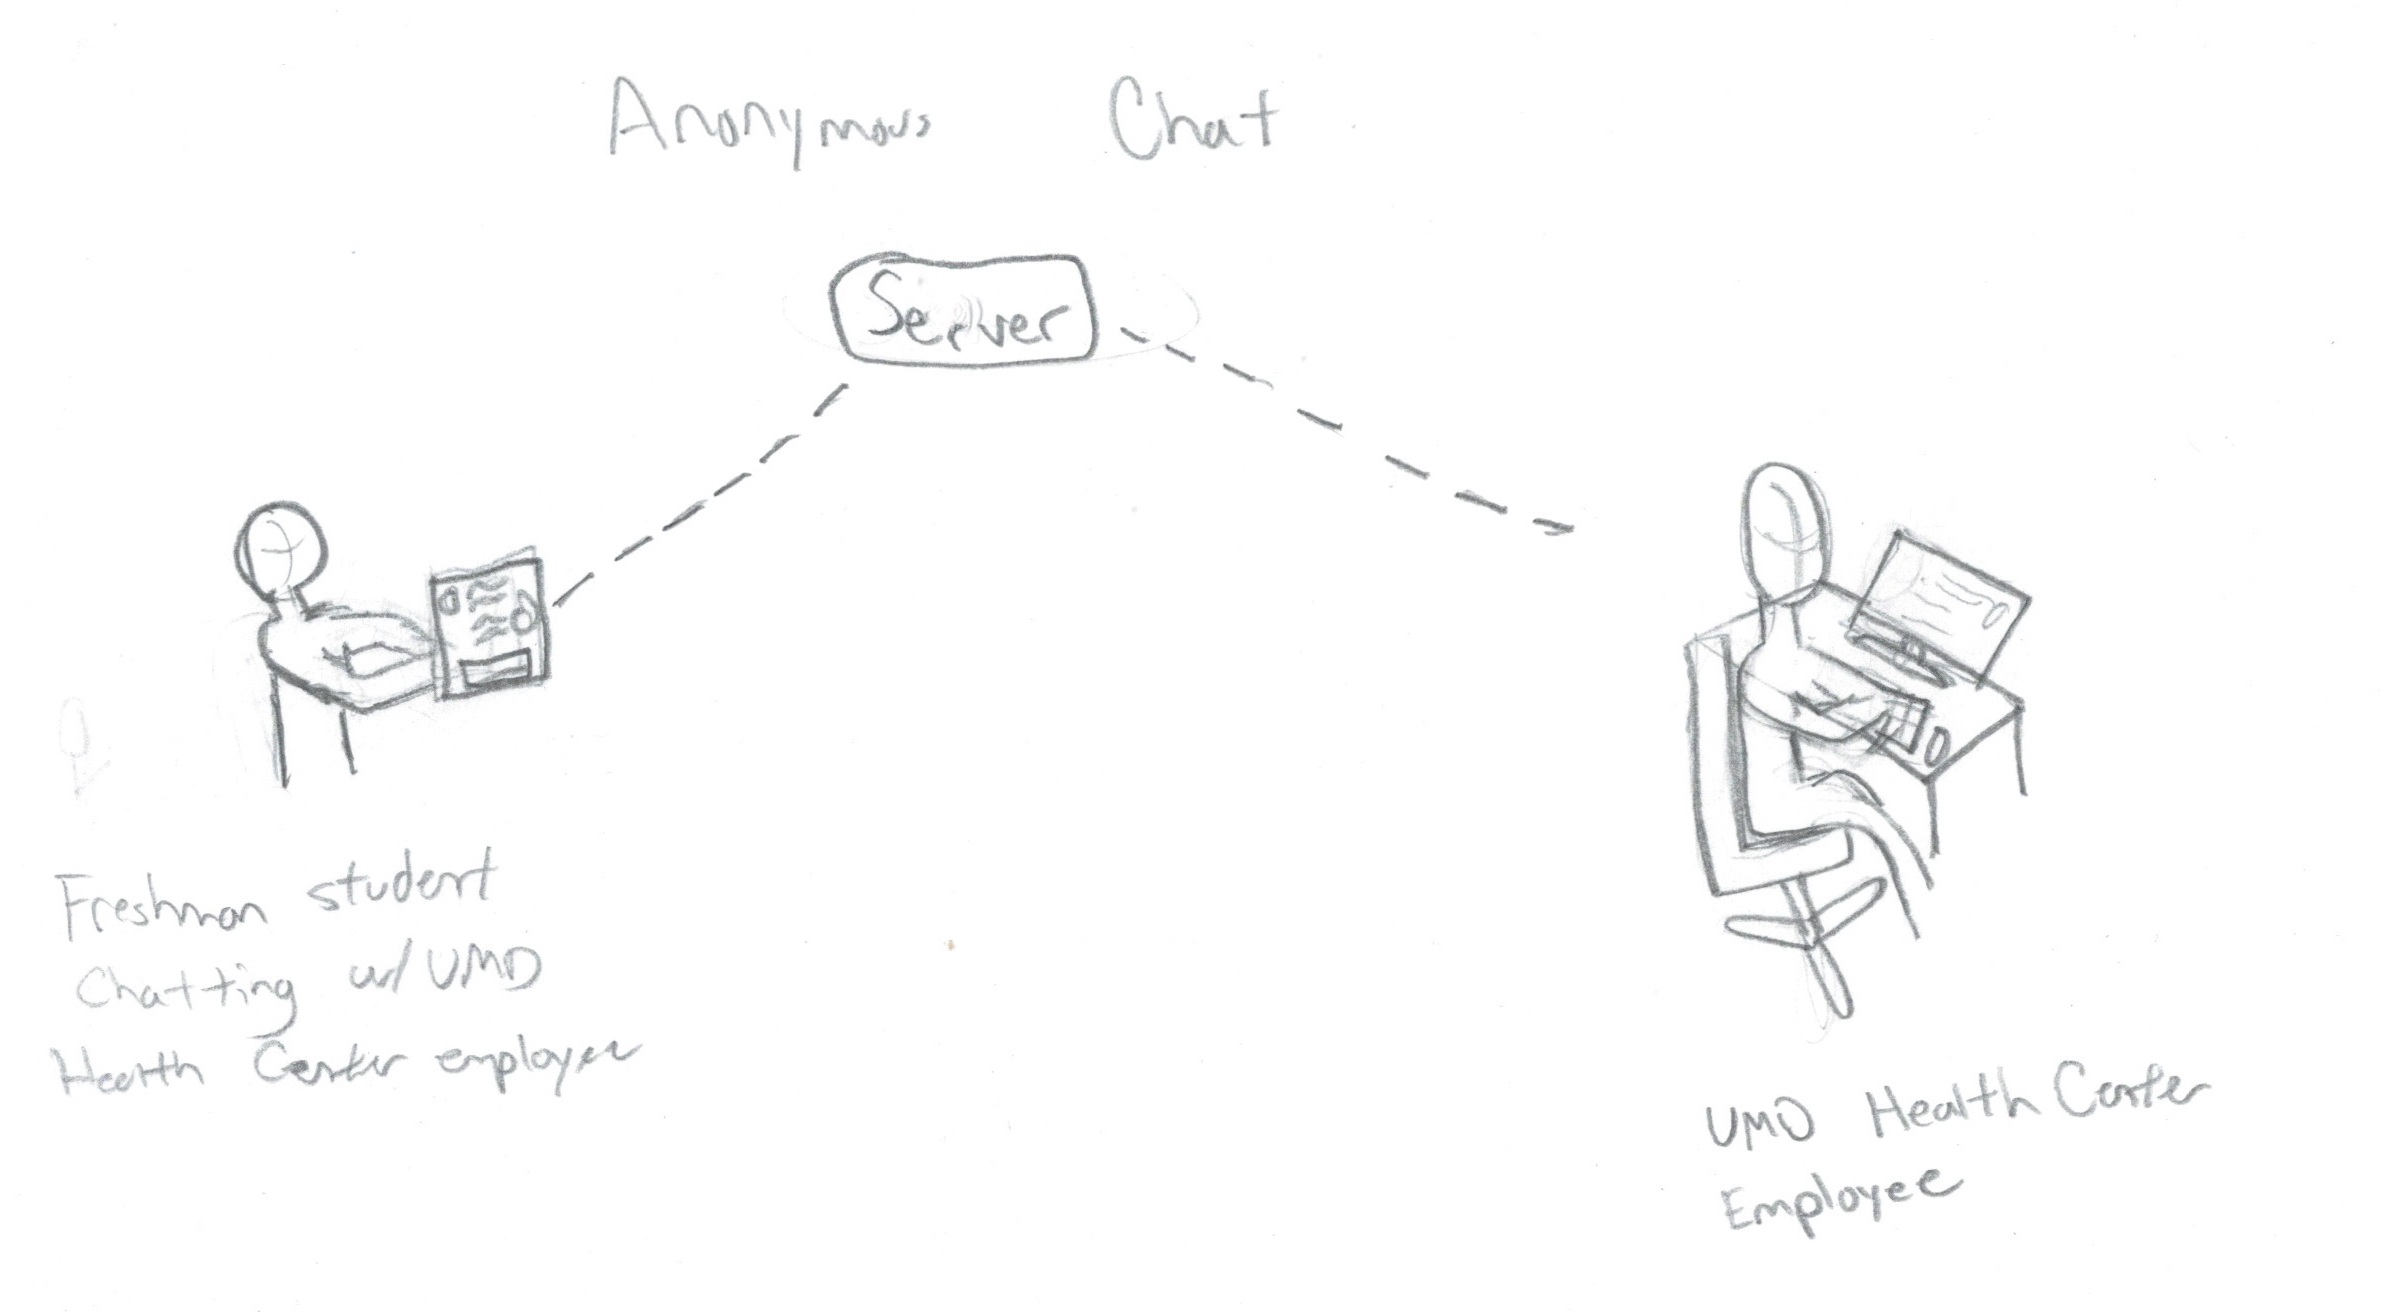 Anonymous Chat
Server
Freshman student
Chatting w/ UMD
Health Center employee
UMD Health Center
Employee